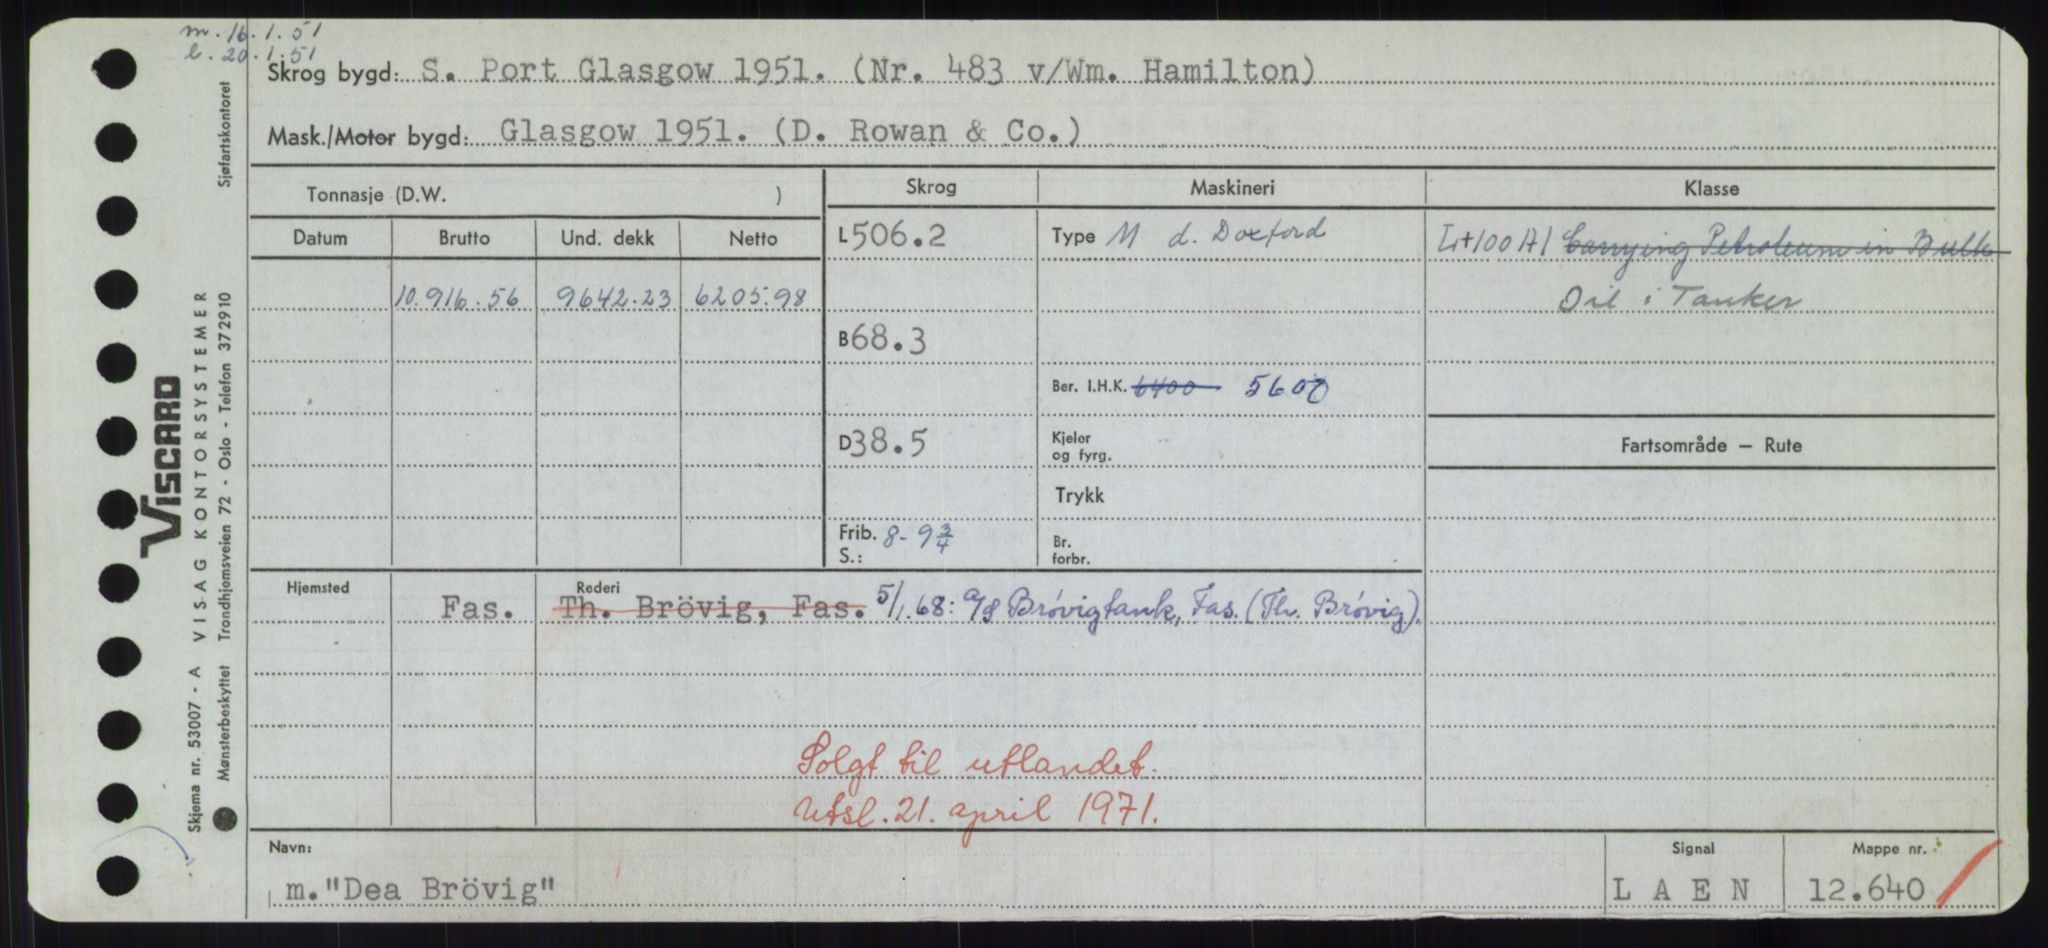 m. 16.1.51
l. 20.1.51
Skrog bygd: S. Port Glasgow 1951. (Nr. 483 v/Wm. Hamilton)
Mask./Motor bygd: Glasgow 1951. (D. Rowan & Co.)
Tonnasje (D.W. )
Skrog
Maskineri
Klasse
Datum
Brutto
Und. dekk
Netto
L506.2
Type M d. Doxford
L+100A1 Carrying Petroleum in Bulk
10.916.56
9642.23
6205.98
Oil i Tanker
B68.3
Ber. I.H.K. 6400 5600
D38.5
Kjeler
og fyrg.
Fartsområde – Rute
Trykk
Frib. 8-9 3/4
S.:
Br.
forbr.
Hjemsted
Fas.
Rederi
Th. Brövig, Fas. 5/1.68: A/S Brövigtank, Fas. (Th. Brövig).
Solgt til utlandet.
Utsl. 21. april 1971.
Navn:
m."Dea Brövig"
Signal
L A E N
Mappe nr.
12.640
Sjøfartskontoret
VISCARD
VISAG KONTORSYSTEMER
Trondhjemsveien 72 - Oslo - Telefon 372910
Skjema nr. 53007 - A
Mønsterbeskyttet